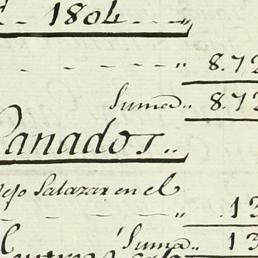 1804
8.72
Suma.. 8.72
Ganados..
Salazar en el
13
Suma.. 13